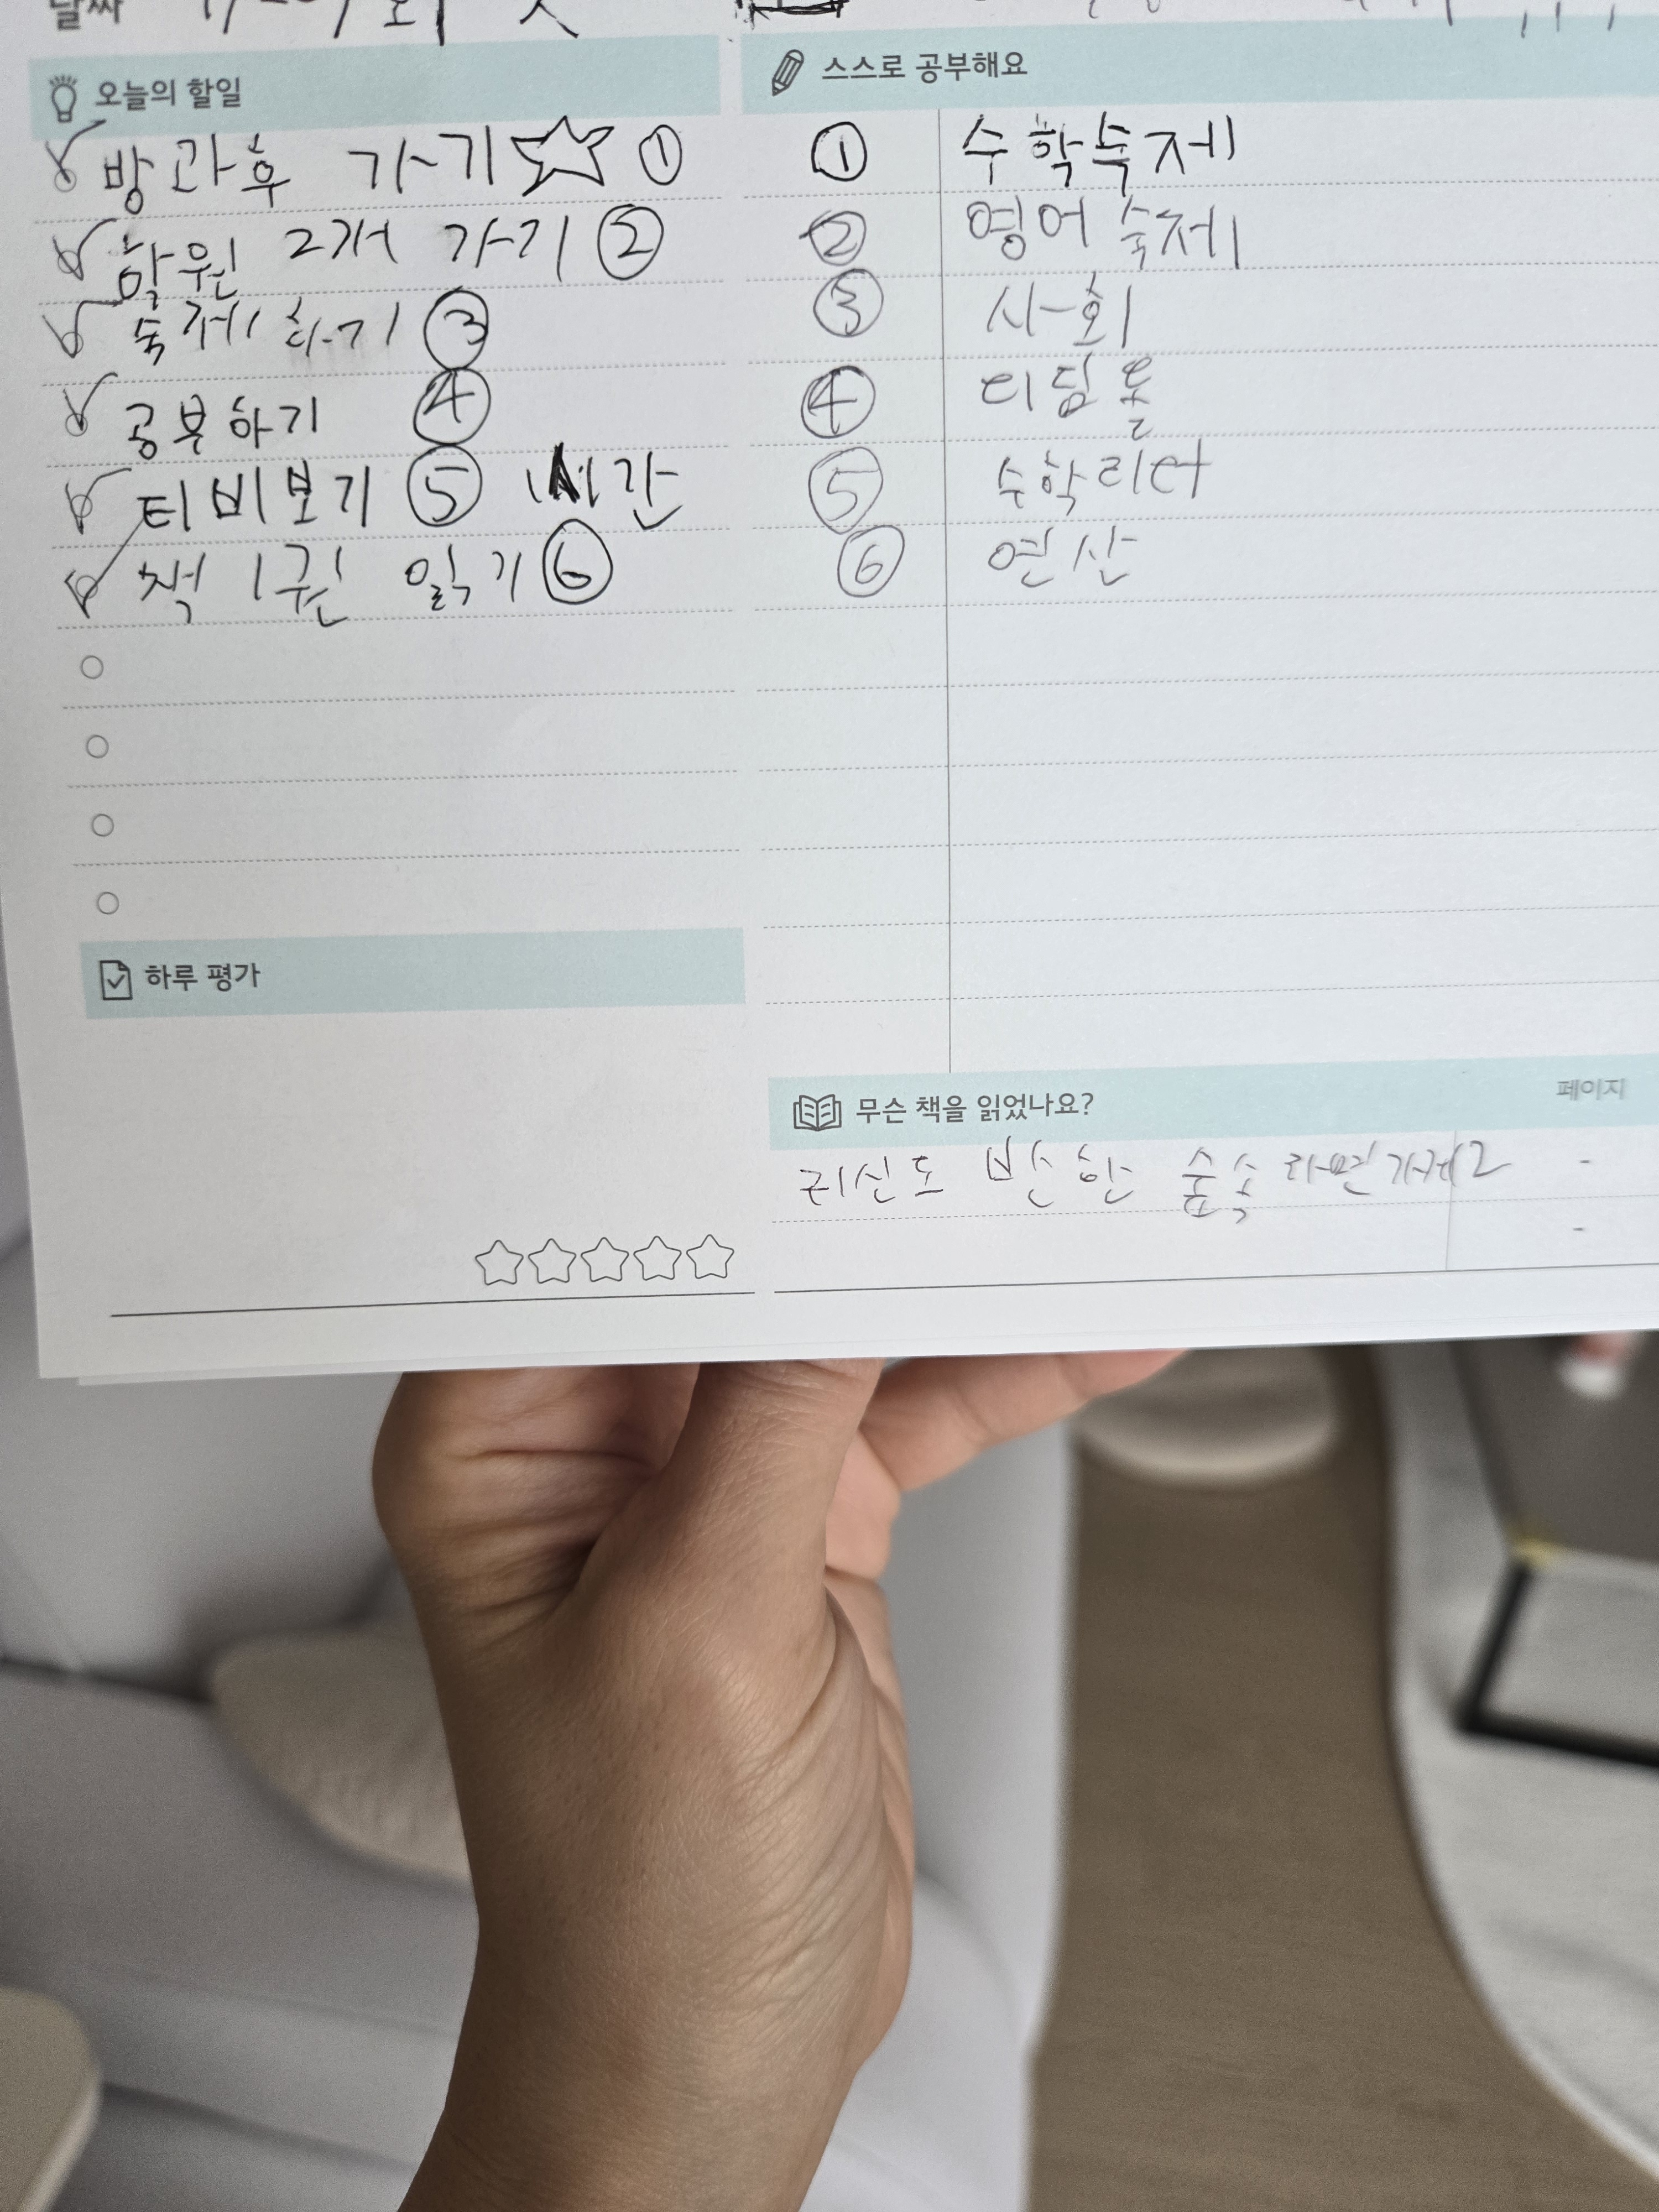 날짜
오늘의 할일
방과후 가기 ①
학원 2개 가기 ②
숙제하기 ③
공부하기 ④
티비보기 ⑤ 1시간
책 1권 읽기 ⑥
하루 평가
스스로 공부해요
① 수학숙제
② 영어 숙제
③ 사회
④ 티담돌
⑤ 수학리터
⑥ 연산
무슨 책을 읽었나요? 페이지
귀신도 반한 숲속 라면가게2 -
-